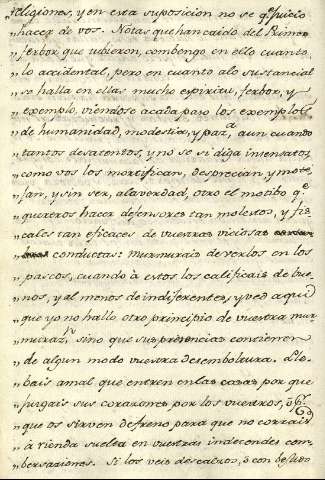 „religiones, y en esta suposicion no se qe. juicio
„hacer de vos. Notas que han caido del Primer
„ferbor que ubieron, combengo en ello cuanto
„lo accidental, pero en cuanto alo sustancial
„se halla en ellas mucho espiritu, ferbor, y
„exemplo, viendose acada paso los exemplos
„de humanidad, modestia, y paz, aun cuando
„tantos desatentos, y no se si diga intensatos,
„como vos los mortifican, desprecian y mote
„jan, y sin ser, ala verdad, otro el motibo qe.
„quereros hacer defensores tan molestos, y fis
„cales tan eficaces de vuestras viciosas
„conductas: murmurais de verlos en los
„paseos, cuando à estos los calificais de bue-
„nos, y al menos de indiferentes, y ved aqui
„que yo no hallo otro principio de vuestra mur-
„murazn. sino que sus presencias contienen
„de algun modo vuestra desemboltura. Lle-
„bais amal que entren enlas casas por que
„juzgais sus corazones por los vuestros, ò pr.
„que os sirven de freno para que no corrais
„à rienda suelta en vuestras indecendes com-
„bersaziones. Si los veis descalzos, ò con bestido